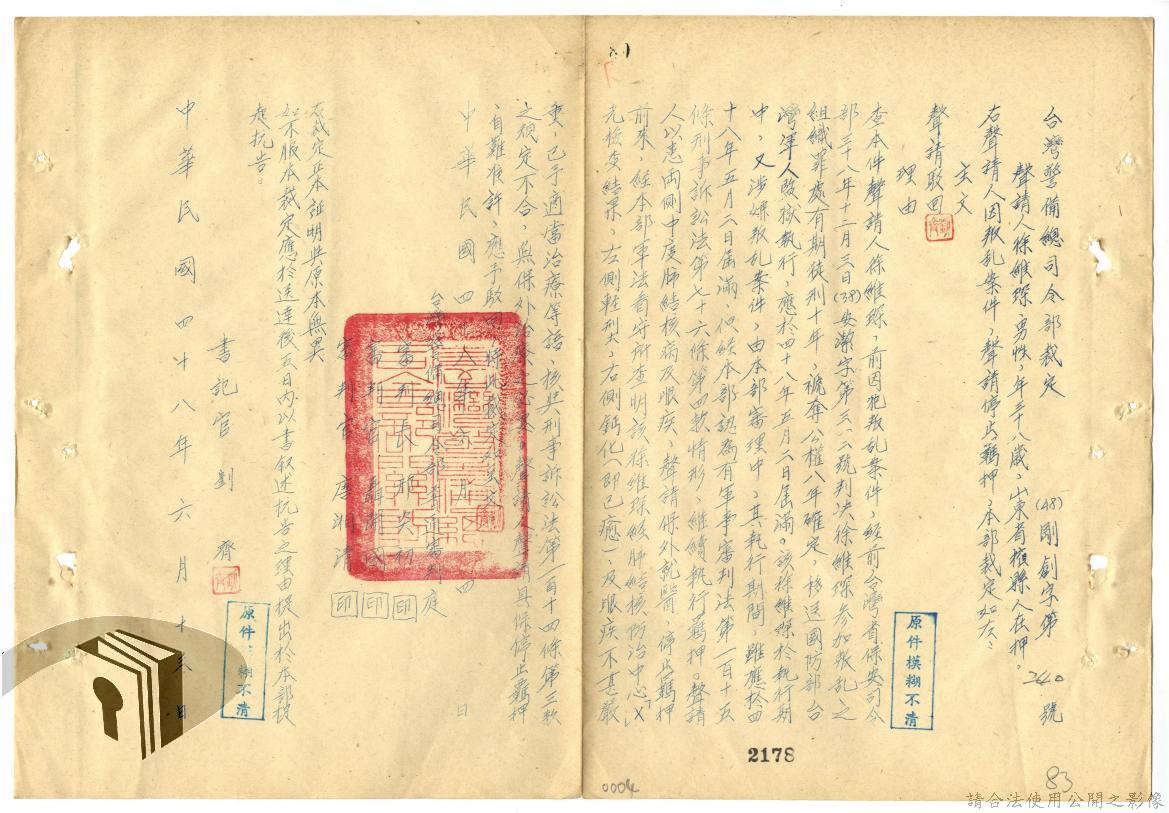 台灣警備總司令部裁定
(48)剛創字第 240 號
聲請人徐維琛，男性，年三十八歲，山東省 縣人在押。
右聲請人因叛乱案件，聲請停止羈押，本部裁定如左：
主文
聲請駁回
理由
查本件聲請人徐維琛，前因犯叛乱案件，經前台灣省保安司令
部三十八年十二月三日(38)安潔字第三二號判决徐維琛参加叛乱之
組織罪處有期徒刑十年，褫奪公權八年確定，移送國防部台
灣軍人監獄執行，應於四十八年五月二日屆滿。該徐維琛於執行期
中，又涉嫌叛乱案件，由本部審理中，其執行期間，雖應於四
十八年五月二日屆滿，但經本部認為有軍事審判法第一百十五
條刑事訴訟法第七十六條第四款情形，継續執行羈押。聲請
人以患両側中度肺結核病及眼疾，聲請保外就醫，停止羈押
前來，經本部軍法看守所查明該徐維琛經肺結核防治中心「X
光檢查結果，左側輕型，右側鈣化（即已癒），及眼疾不甚嚴
重，已予適當治療等語，核與刑事訴訟法第一百十四條第三款
之規定不合，無保外 聲請人聲 具保停止羈押
，自難准許，應予駁回，特此裁定如主文
中華民國四十八年六月 四 日
台灣警備總司令部 審判庭
審判長
審判官
審判官 唐湘清
印
印
印
右裁定正本証明與原本無異
如不服本裁定應於送達後五日內以書叙述抗告之理由提出於本部提
起抗告。
書記官 劉齊
中華民國四十八年六月十 日
原件模糊不清
原件模糊不清
2178
0004
83
請合法使用公開之影像